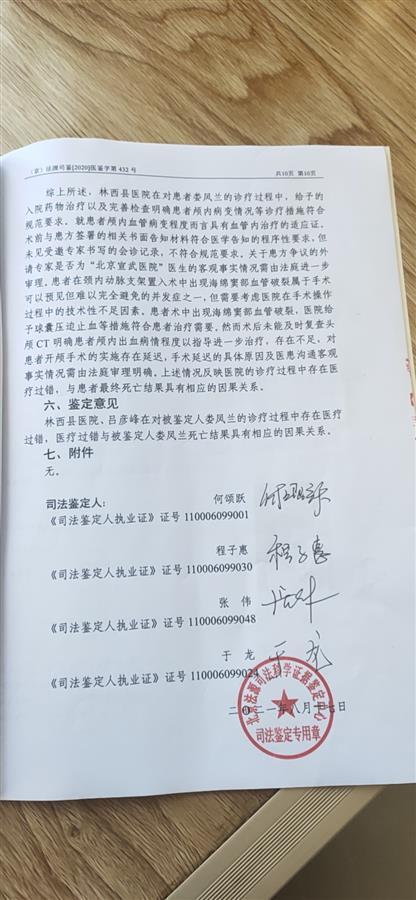 （京）法源司鉴[2020]医鉴字第 432 号 共10页 第10页
综上所述，林西县医院在对患者娄凤兰的诊疗过程中，给予的
入院药物治疗以及完善检查明确患者颅内病变情况等诊疗措施符合
规范要求。就患者颅内血管病变程度而言具有血管内治疗的适应证。
术前与患方签署的相关书面告知材料符合医学告知的程序性要求，但
未见受邀专家书写的会诊记录，不符合规范要求。关于患方争议的外
请专家是否为“北京宣武医院”医生的客观事实情况需由法庭进一步
审理。患者在颈内动脉支架置入术中出现海绵窦部血管破裂属于手术
可以预见但难以完全避免的并发症之一，但需要考虑医院在手术操作
过程中的技术性不足因素。患者术中出现海绵窦部血管破裂，医院给
予球囊压迫止血等措施符合患者治疗需要。然而术后未能及时复查头
颅 CT 明确患者颅内出血病情程度以指导进一步治疗，存在不足，对
患者开颅手术的实施存在延迟，手术延迟的具体原因及医患沟通客观
事实情况需由法庭审理明确。上述情况反映医院的诊疗过程中存在医
疗过错，与患者最终死亡结果具有相应的因果关系。
六、鉴定意见
林西县医院、吕彦峰在对被鉴定人娄凤兰的诊疗过程中存在医疗
过错，医疗过错与被鉴定人娄凤兰死亡结果具有相应的因果关系。
七、附件
无。
司法鉴定人： 何颂跃
《司法鉴定人执业证》证号 110006099001
程子惠
《司法鉴定人执业证》证号 110006099030
张 伟
《司法鉴定人执业证》证号 110006099048
于 龙
《司法鉴定人执业证》证号 110006099024
二〇二一年八月十七日
北京法源司法科学证据鉴定中心
司法鉴定专用章